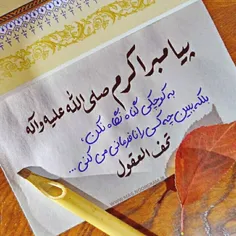 پیامبر اکرم صلی الله علیه وآله
به کوچکی گناه نگاه نکن،
بلکه ببین چه کسی را نافرمانی می کنی...
تحف العقول